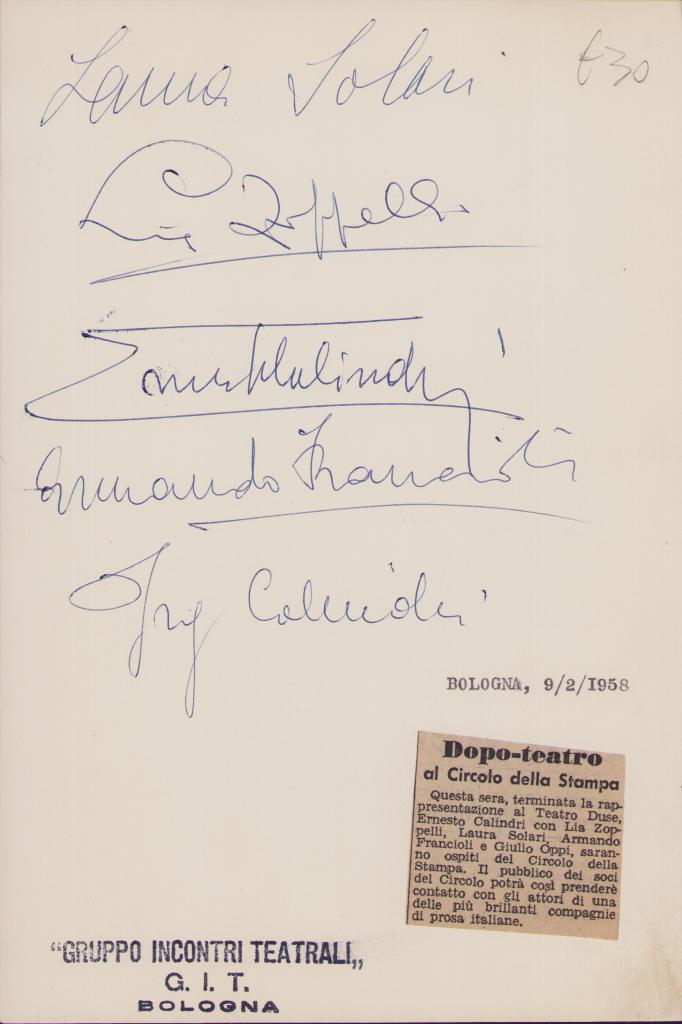 Laura Solari
£30
Lia Zoppelli
Ernesto Calindri
Armando Francioli
Calindri
BOLOGNA, 9/2/1958
Dopo-teatro
al Circolo della Stampa
Questa sera, terminata la rap-
presentazione al Teatro Duse,
Ernesto Calindri con Lia Zop-
pelli, Laura Solari, Armando
Francioli e Giulio Oppi, saran-
no ospiti del Circolo della
Stampa. Il pubblico dei soci
del Circolo potrà così prendere
contatto con gli attori di una
delle più brillanti compagnie
di prosa italiane.
“GRUPPO INCONTRI TEATRALI„
G. I. T.
BOLOGNA